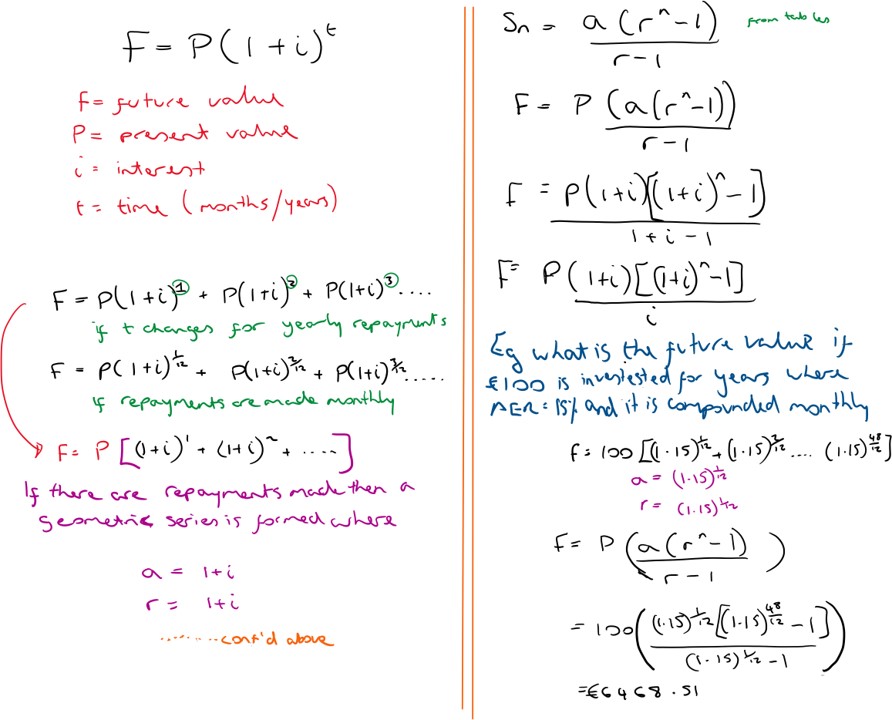 F = P(1+i)^t
F = future value
P = present value
i = interest
t = time (months/years)
F = P(1+i)^① + P(1+i)^② + P(1+i)^③ ....
if t changes for yearly repayments
F = P(1+i)^1/12 + P(1+i)^2/12 + P(1+i)^3/12 .....
if repayments are made monthly
F = P [(1+i)^1 + (1+i)^2 + ....]
If there are repayments made then a
geometric series is formed where
a = 1+i
r = 1+i
.........cont'd above
Sn = a(r^n-1) / r-1 from tables
F = P (a(r^n-1)) / r-1
F = P(1+i)[(1+i)^n-1] / 1+i-1
F = P(1+i)[(1+i)^n-1] / i
Eg what is the future value if
€100 is invested for years where
AER = 15% and it is compounded monthly
F = 100 [(1.15)^1/12 + (1.15)^2/12 .... (1.15)^48/12]
a = (1.15)^1/12
r = (1.15)^1/12
F = P (a(r^n-1) / r-1)
= 100 ((1.15)^1/12 [(1.15)^48/12 - 1] / (1.15)^1/12 - 1)
= €6468.51